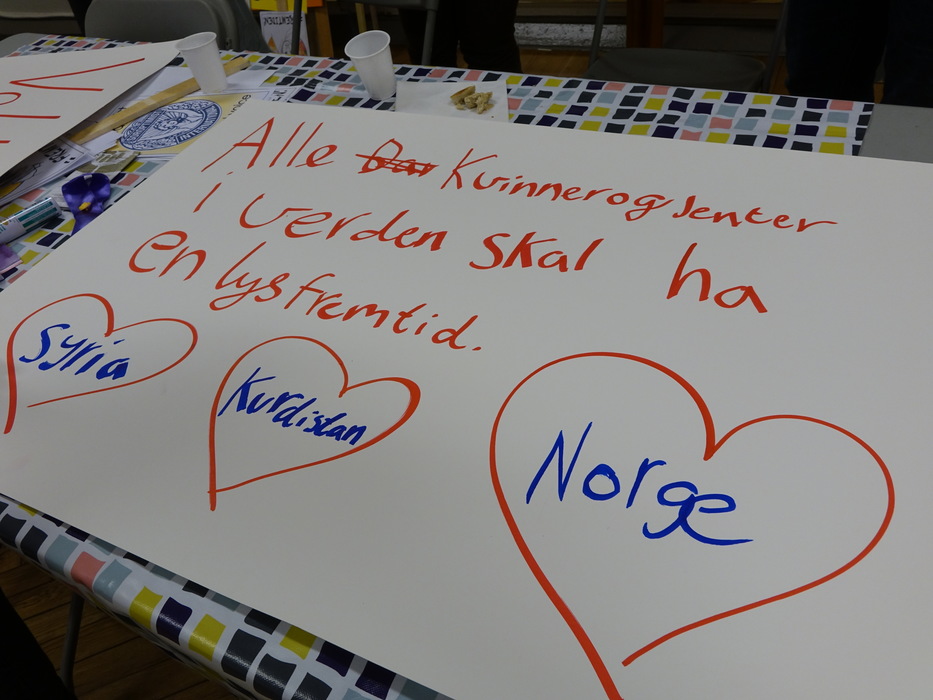 Alle Kvinner og Jenter
i verden skal ha
en lys fremtid.
Syria
Kurdistan
Norge